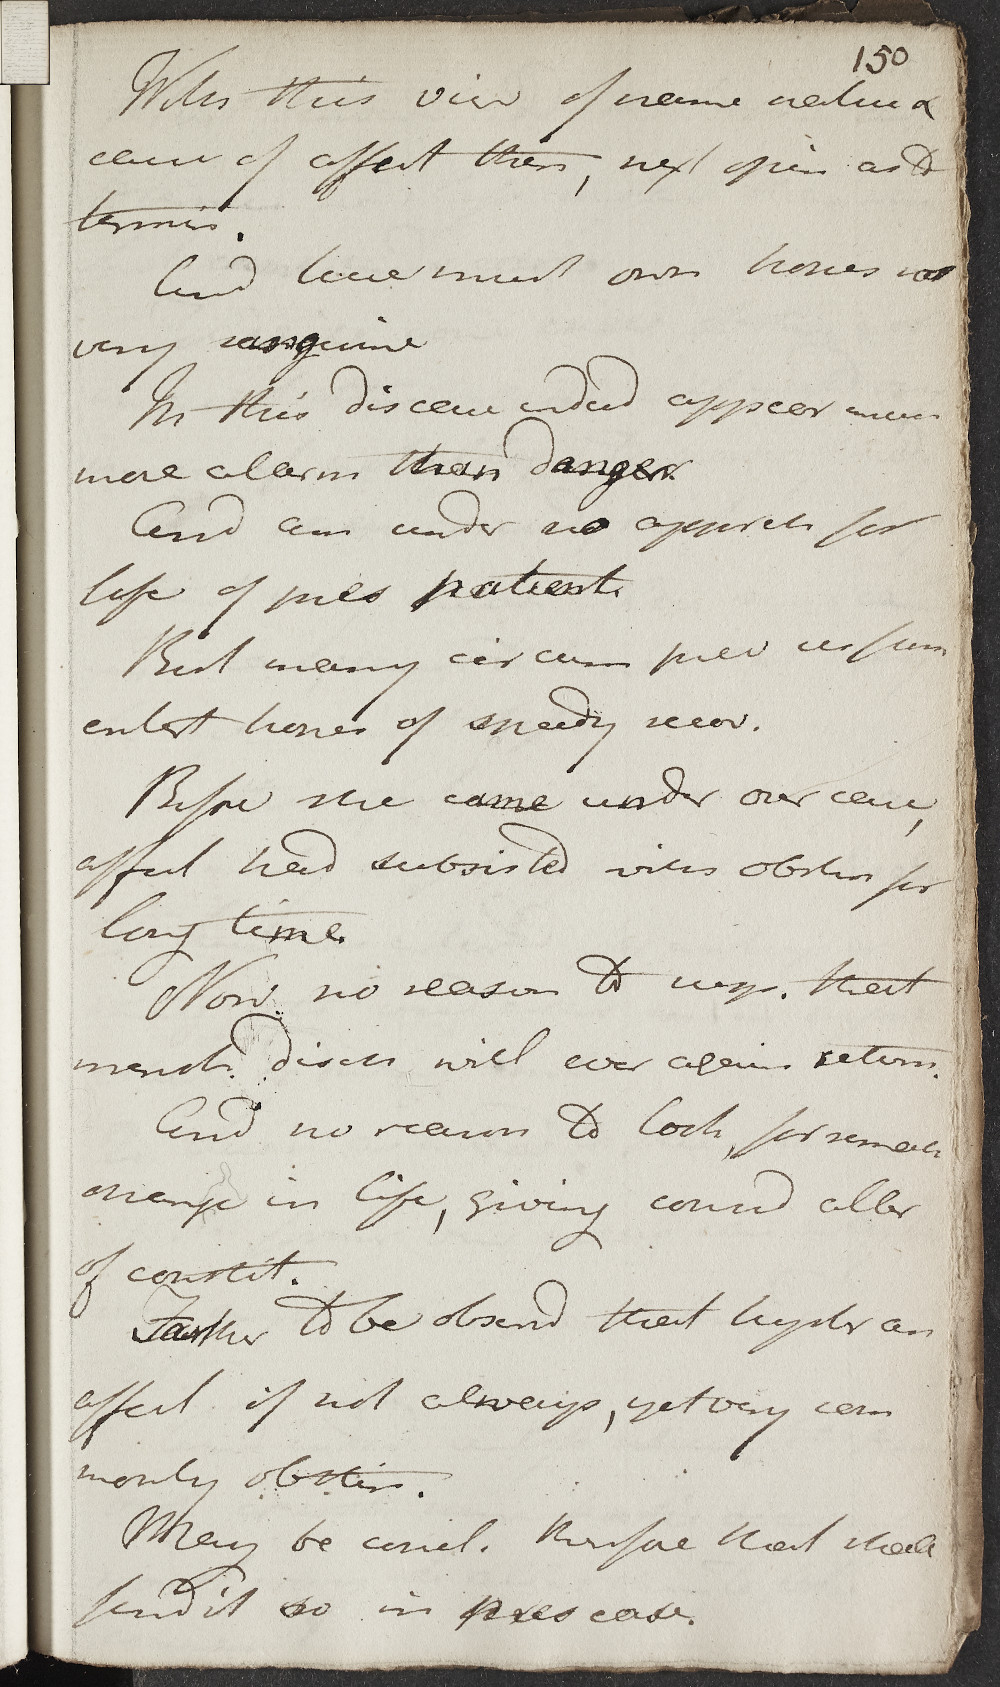 150
With this view of name nature &
cause of affect then, next opin as to
termin.
And here must own hopes not
very sanguine
In this disease indeed appear much
more alarm than danger.
And am under no appreh for
life of pres patient.
But many circum prev us from
entert hopes of speedy recov.
Before she came under our care,
affect had subsisted with obstin for
long time.
Now no reason to supp. that
menst. disch will ever again return.
And no reason to look for remark
change in life, giving consid alter
of constit.
Farther to be observd that hyster an
affect if not always, yet very com
monly obstin.
May be concl. therefore that shall
find it so in pres case.